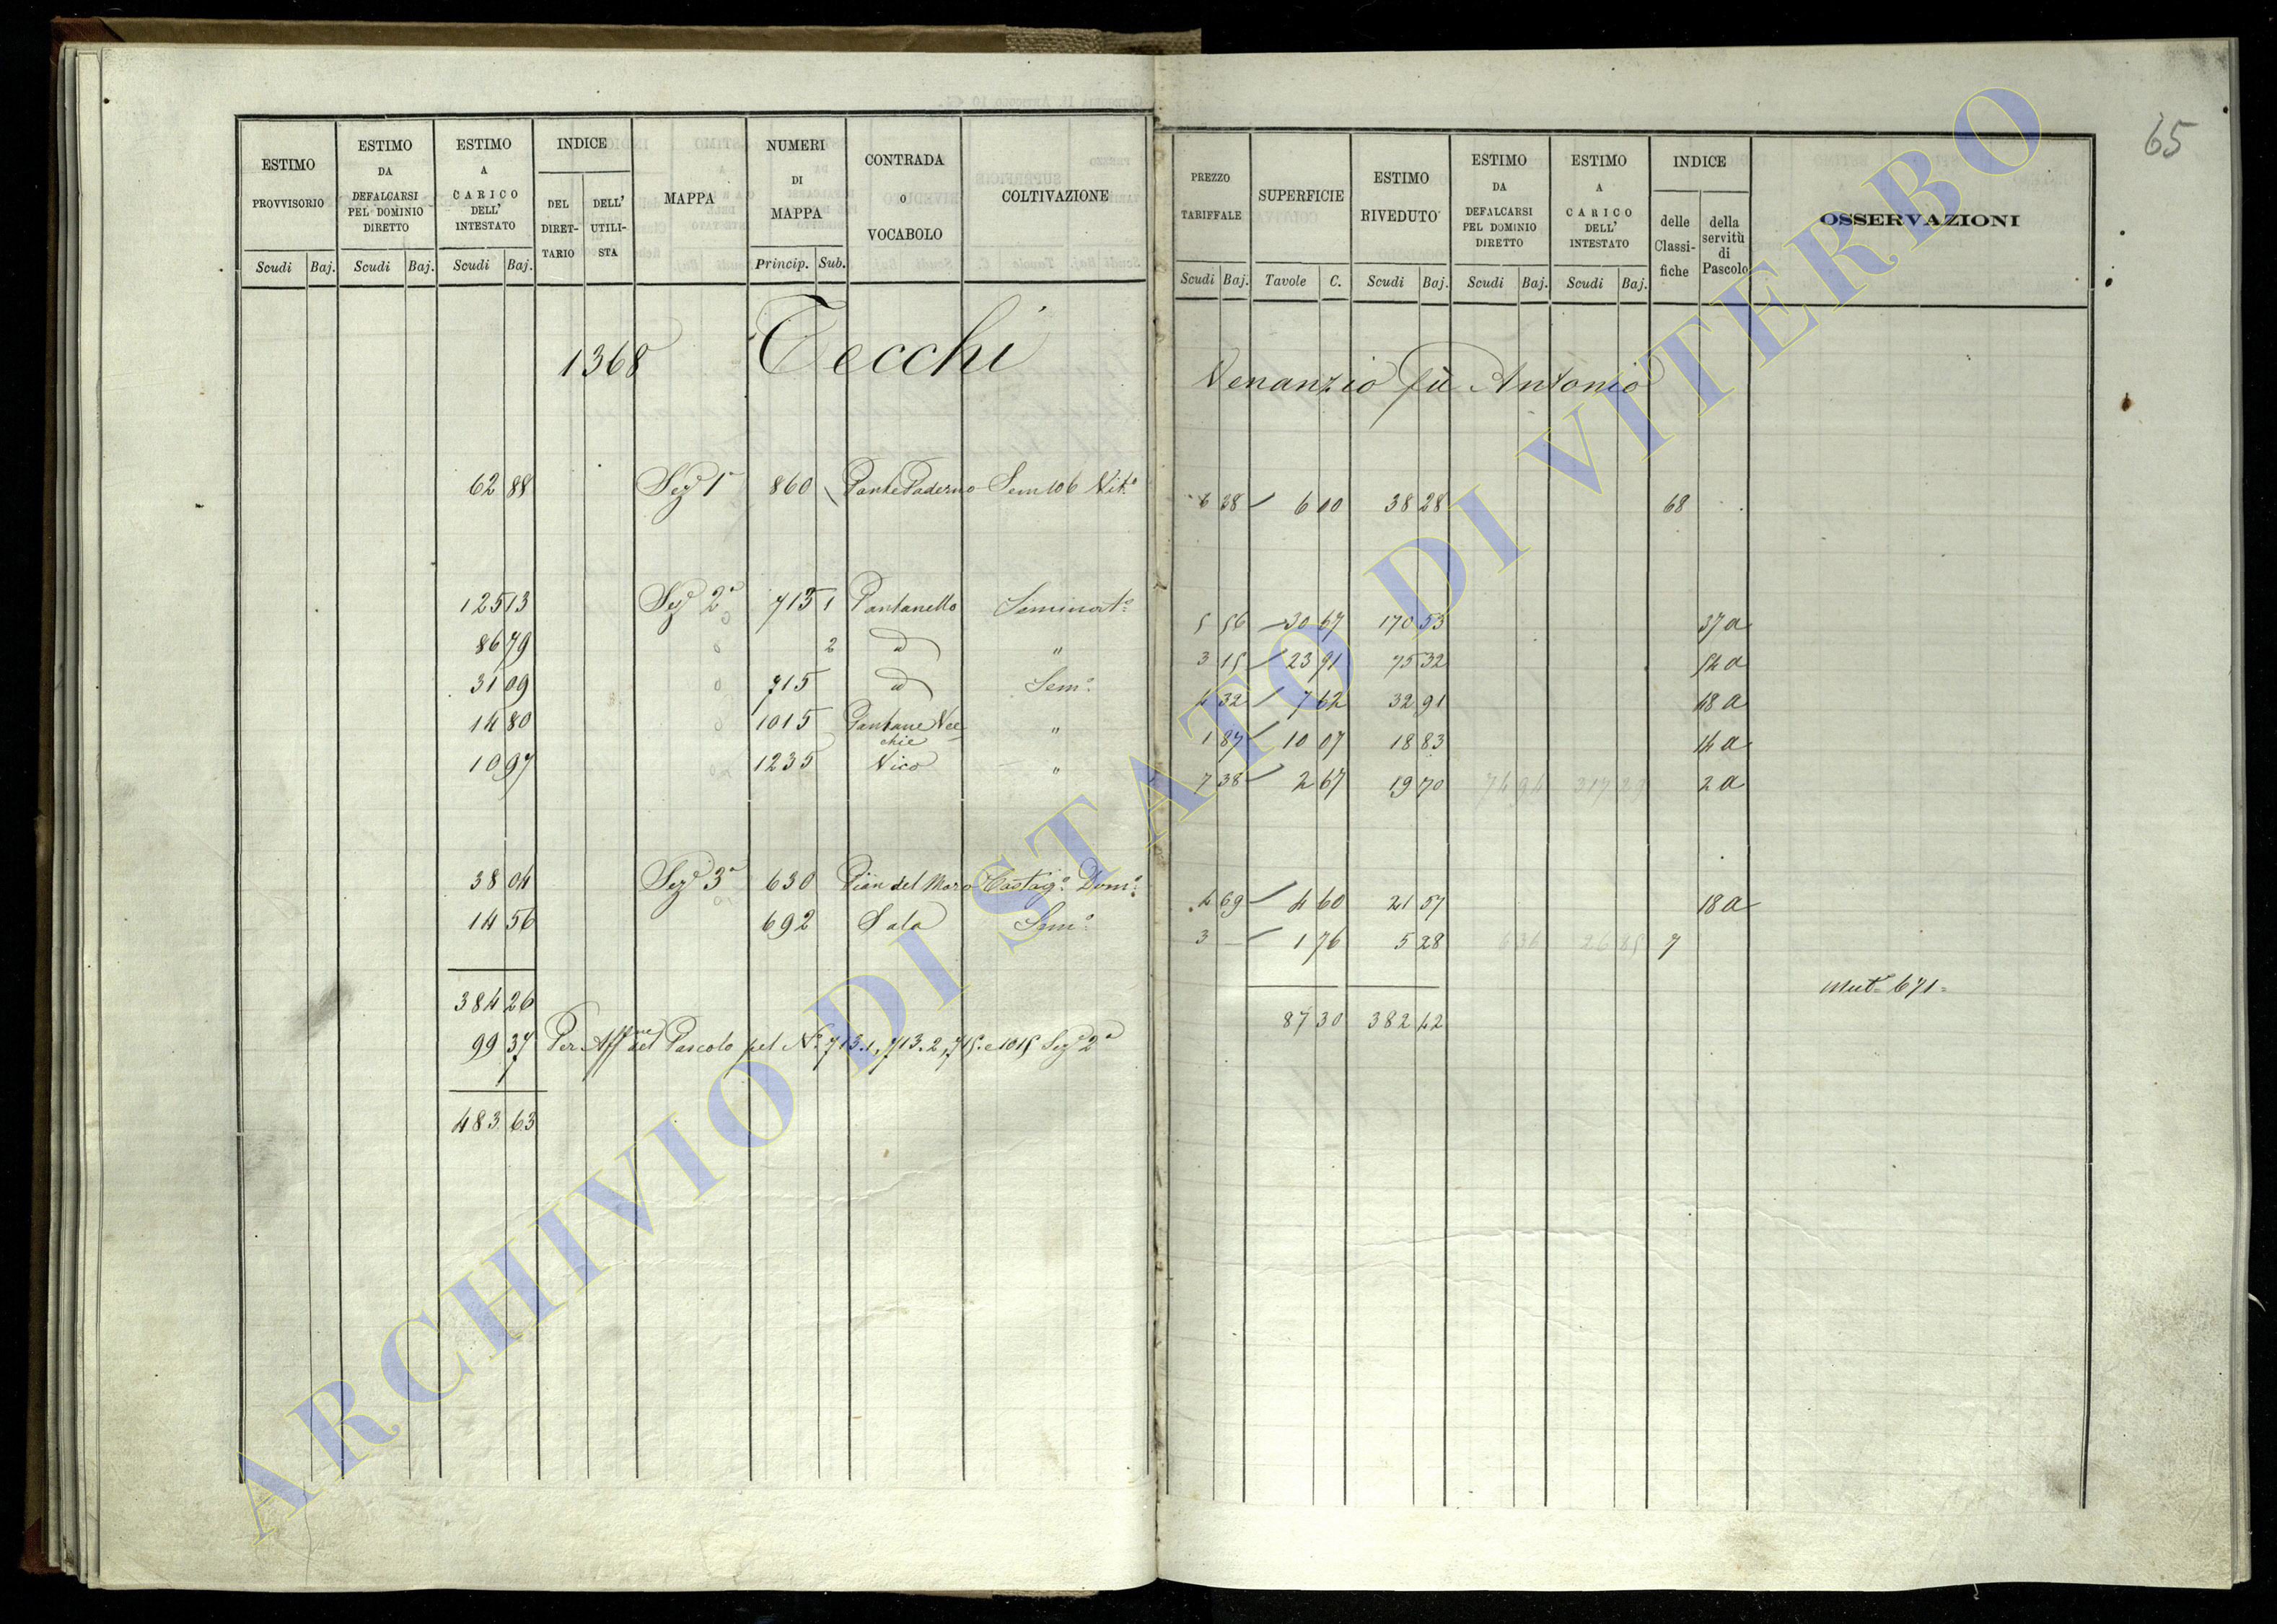 65
ESTIMO PROVVISORIO Scudi Baj.
ESTIMO DA DEFALCARSI PEL DOMINIO DIRETTO Scudi Baj.
ESTIMO A CARICO DELL' INTESTATO Scudi Baj.
INDICE DEL DIRET-TARIO DELL' UTILI-STA
MAPPA
NUMERI DI MAPPA Princip. Sub.
CONTRADA o VOCABOLO
COLTIVAZIONE
PREZZO TARIFFALE Scudi Baj.
SUPERFICIE Tavole C.
ESTIMO RIVEDUTO Scudi Baj.
ESTIMO DA DEFALCARSI PEL DOMINIO DIRETTO Scudi Baj.
ESTIMO A CARICO DELL' INTESTATO Scudi Baj.
INDICE delle Classi-fiche della servitù di Pascolo
OSSERVAZIONI
1368 Tecchi Venanzio fù Antonio
62 88 Sez.e 1a 860 Ponte Paderno Sem 106 Vit.o 6 38 6 00 38 28 68
125 13 Sez.e 2a 713 1 Pantanello Seminat.o 5 56 30 67 170 53 37 a
86 79 2 id " 3 15 23 91 75 32 54 a
31 09 715 id Sem.o 4 32 7 62 32 91 18 a
14 80 1015 Pantane Vec
chie " 1 87 10 07 18 83 14 a
10 97 1235 Vico " 7 38 2 67 19 70 74 94 317 29 2 a
38 04 Sez.e 3a 630 Pian del Moro Castag.o Dom.o 4 69 4 60 21 57 18 a
14 56 692 Sala Sem.o 3 — 1 76 5 28 26 85 7
Mut.e 671
384 26 87 30 382 42
99 37 Per Aff.ne del Pascolo pel N.o 713.1, 713.2, 715. e 1015 Sez.e 2a
483 63
ARCHIVIO DI STATO DI VITERBO